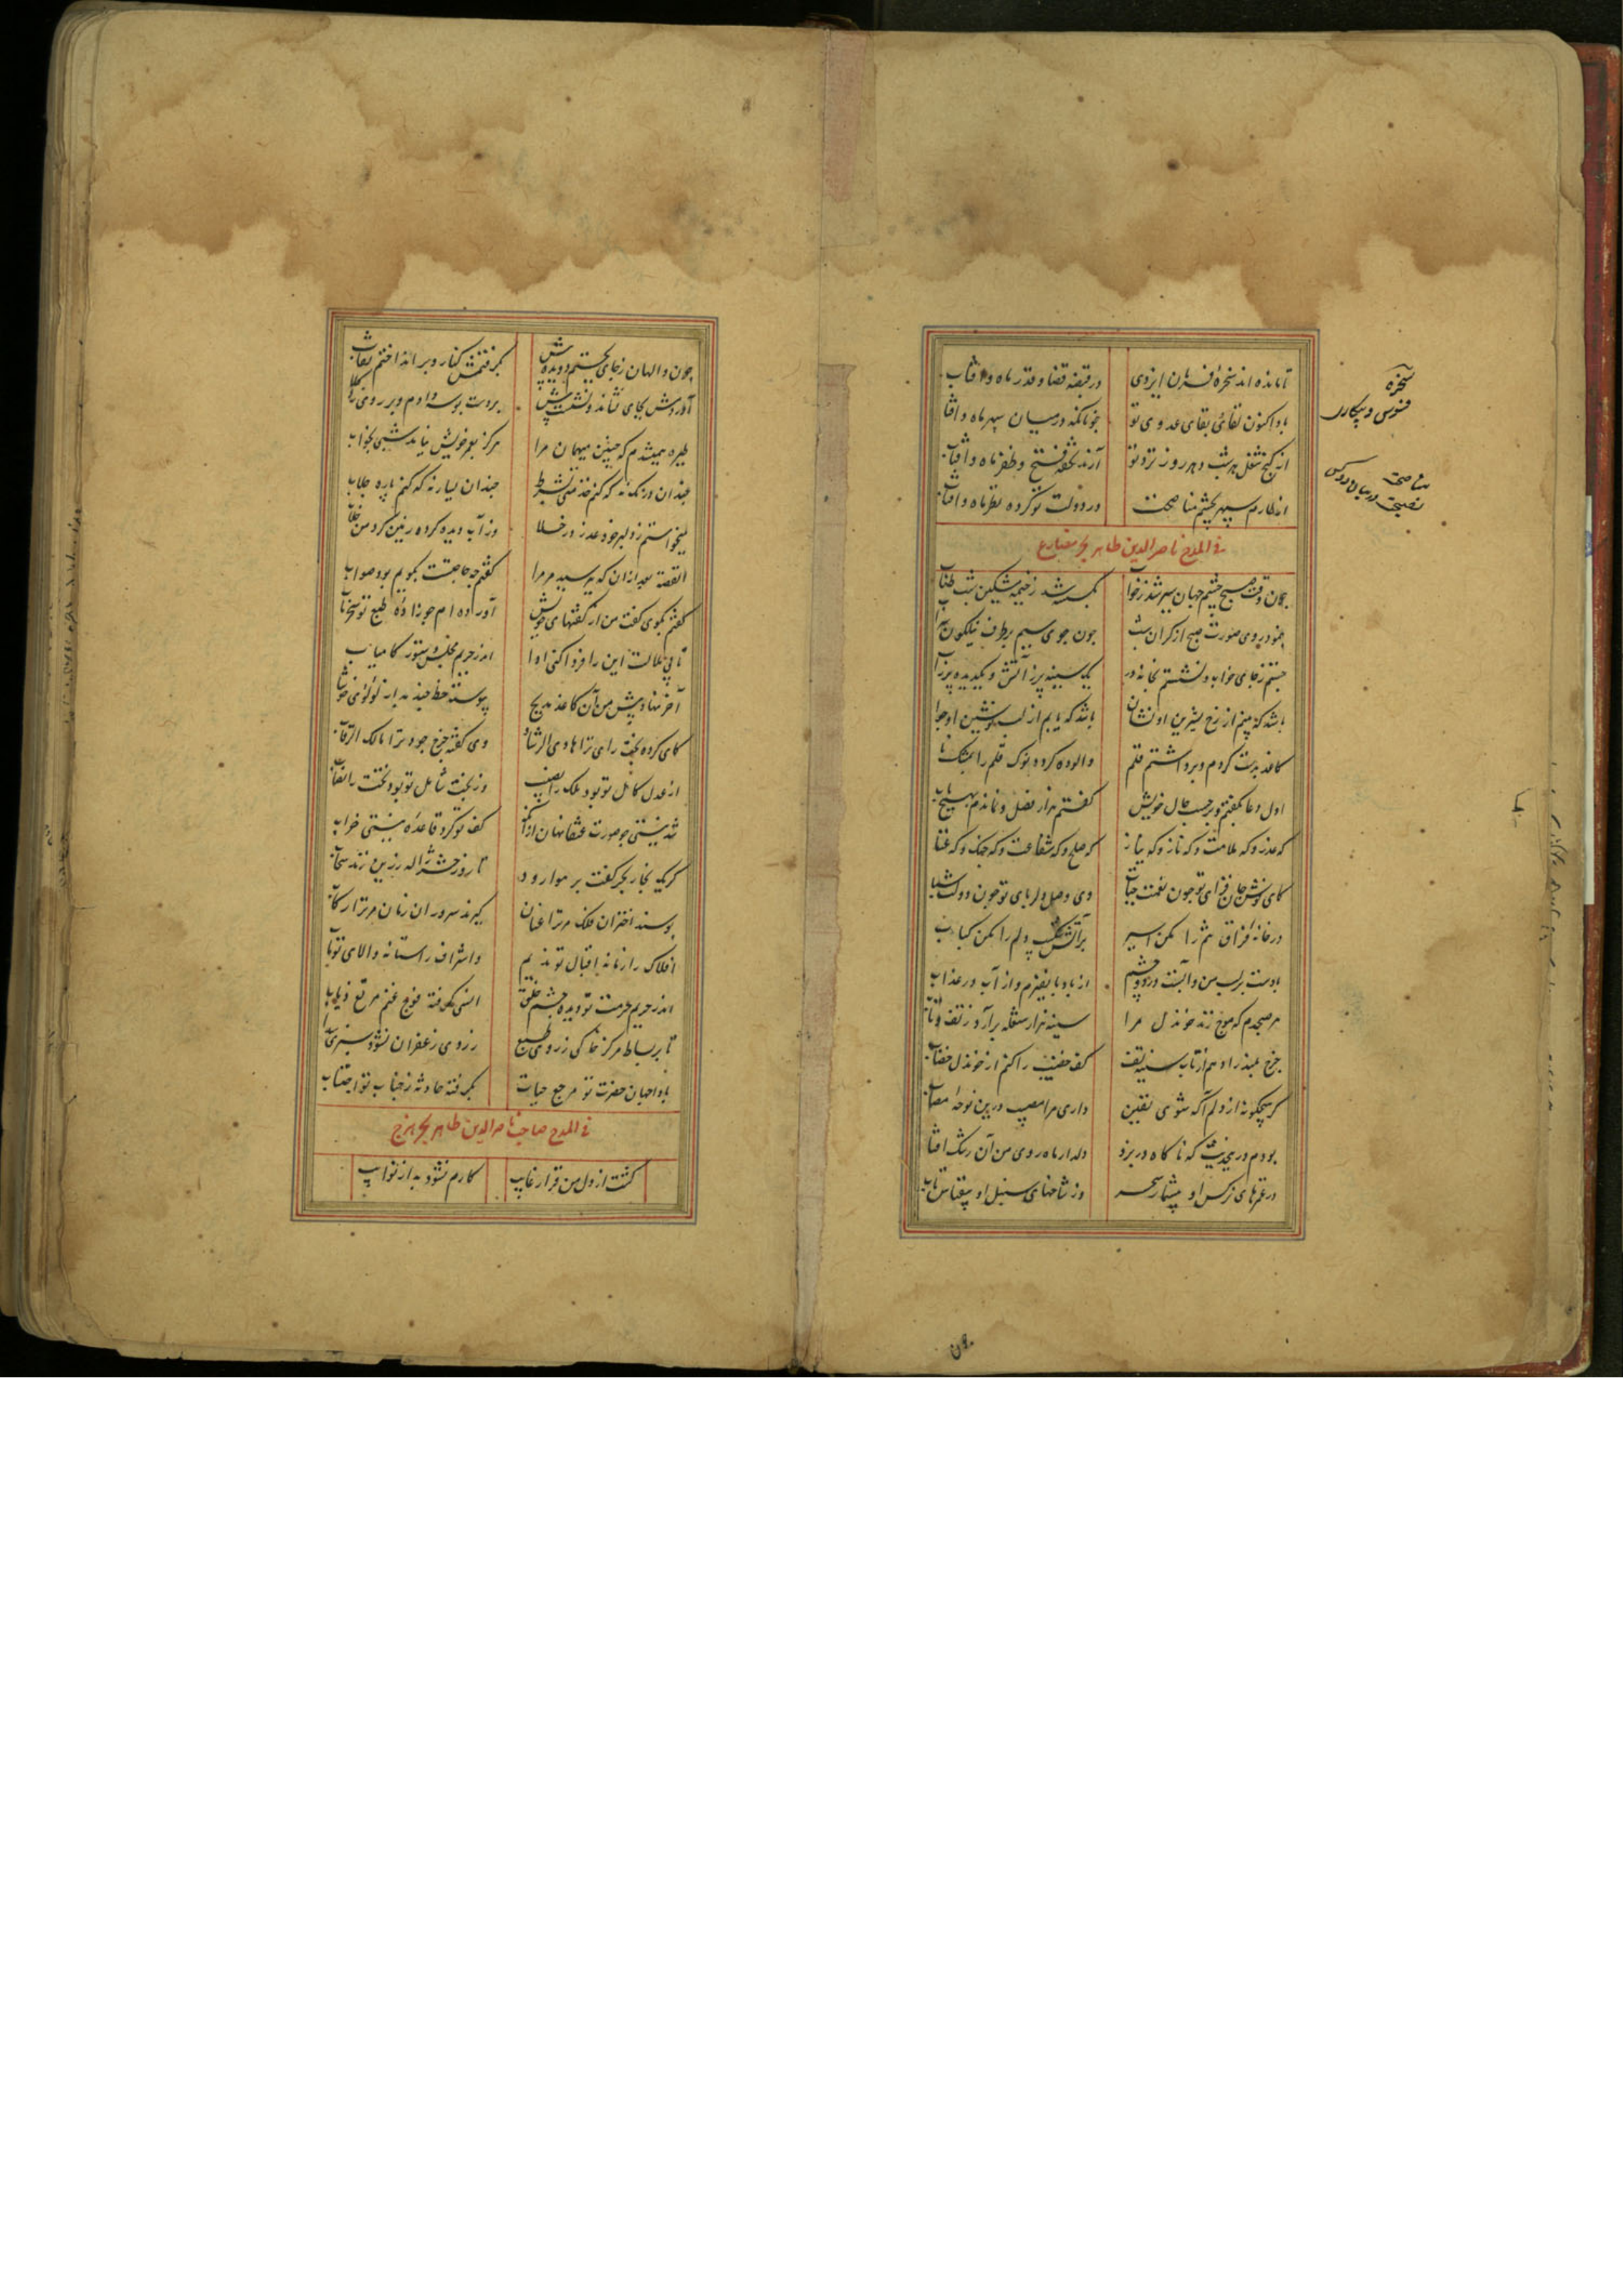 تا مانده اند سخرهٔ فرمان ایزدی در قبضه قضا و قدر ماه و افتاب
بادا کنون لقای بقای عدوی تو جونانکه درمیان سپر ماه و افتاب
از کنج شغل هر شب و هر روز نزد تو آرند تحفه فتح و ظفر ماه و افتاب
از طارم سپهر بچشم مناصحت در دولت تو کرده نظر ماه و افتاب
فی المدح ناصرالدین طاهر بحر مضارع
چون وقت صبح چشم جهان سیر شد ز خواب بگسسته شد ز خیمه مشکین شب طناب
بنمود روی صورت صبح از کران شب چون جوی سیم بر طرف نیلگون سراب
جستم ز جای خواب و نشستم بخانه در یک سینه پر ز آتش و یک دیده پر ز آب
باشد که بینم از رخ نسرین او نشان باشد که یابم از لب نوشین او جواب
کاغذ بدست کردم و برداشتم قلم والوده کرد نوک قلم را بمشک ناب
اول دعا بگفتم و بر حسب حال خویش گفتم هزار فصل و نماندم بهیچ باب
که عذر و که ملامت و که ناز و که نیاز که صلح و که شفاعت و که جنک و که عتاب
کای نوش جان فزای تو چون نعمت حیات وی وصل دلربای تو چون دولت شباب
در خانه فراق تنم را مکن اسیر بر آتش شکیب دلم را مکن کباب
بادست بر لب من و آبست در دو چشم از باد با نفیرم و از آب در عذاب
هر صبحدم که موج زند خون دل مرا سینه هزار شعله برآرد ز تف و تاب
چرخ عبد را دهم از تاب سینه تف کف خضیب را کنم از خون دل خضاب
گر هیچکونه از دلم آگه شوی یقین داری مرا مصیب درین نوحه مصاب
بودم درین حدیث که ناکاه در بزد دلدار ماه روی من آن رشک افتاب
در غمزهای نرکس او بیشمار سحر وز شاخهای سنبل او بیقیاس تاب
سخره
فسوس و بیکاری
مناصحت
نصیحت
چون والهان ز جای بجستم دویده پیش بگرفتمش کنار و برانداختم نقاب
آوردمش بجای نشاند و نشست پیش بر دست بوسه دادم و بر روی زد گلاب
طیره همیشدم که چنین میهمان مرا هرگز بعمر خویش نیاید شبی بخواب
چندان درنک نه که کنم خدمتی بشرط چندان یسار نه که کنم پاره جلاب
میخواستم ز دلبر خود عذر در خلا وز آب دیده کرده زمین کرد من خلاب
القصه بعد از ان که بپرسید مر مرا گفتم چه حاجتست بگویم بود صواب
گفتم بگوی گفت من از گفتهای خویش آورده ام چو زاده طبع تو سحر ناب
تا بی ملالت این را فردا کنی ادا اندر حریم مجلس دستور کامیاب
آخر نهاد پیش من آن کاغذ مدیح پیوسته خط چند به از لؤلؤی خوشاب
کای کرده بخت رای ترا هادی الرشاد وی گفته چرخ جود ترا مالک الرقاب
از عدل کامل تو بود ملک را نصیب وز بخت شامل تو بود تخت را نصاب
شد نیستی چو صورت عنقا نهان از آنک کف تو کرد قاعده نیستی خراب
گر یک بخار بحر کفت بر هوا رود تا روز حشر ژاله زرین زند سحاب
بوسند اختران فلک مر ترا عنان گیرند سروران زمان مر ترا رکاب
افلاک را زمانه اقبال تو ندیم واشراف را ستانه والای تو مآب
اندر حریم حرمت تو دیده چشم خلق انسی گرفته فوج غنم مرتع ذیاب
تا بر بساط مرکز خاکی ز روی طبع زردی ز زعفران نشود سبزی سداب
بادا جهان حضرت تو مرجع حیات بگرفته حادثه ز جناب تو اجتناب
فی المدح صاحب ناصرالدین طاهر بحر هزج
گشت از دل من قرار غایب کارم نشود به از نوایب